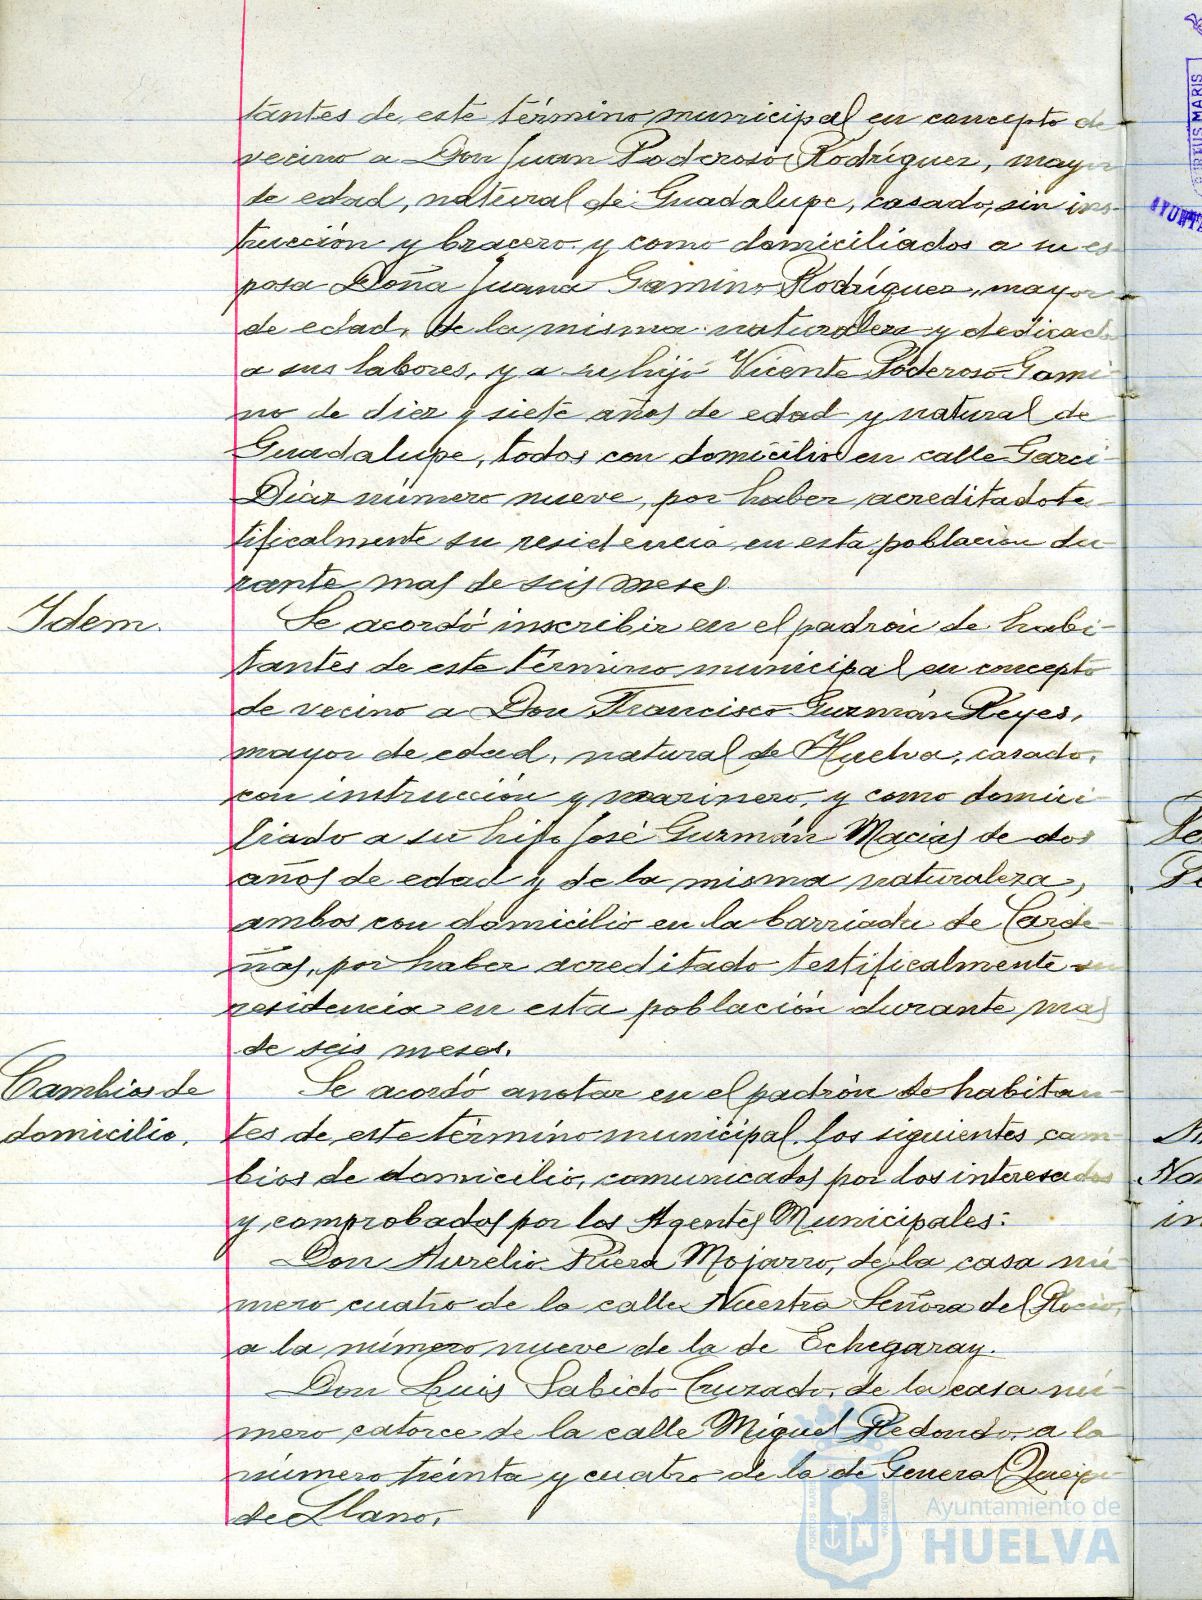 tantes de este término municipal en concepto de
vecino a Don Juan Poderoso Rodríguez, mayor
de edad, natural de Guadalupe, casado, sin ins-
trucción y bracero, y como domiciliados a su es-
posa Doña Juana Gamino Rodríguez, mayor
de edad, de la misma naturaleza y dedicada
a sus labores, y a su hijo Vicente Poderoso Gami-
no de diez y siete años de edad y natural de
Guadalupe, todos con domicilio en calle Garci
Diaz número nueve, por haber acreditado tes-
tificalmente su residencia en esta población du-
rante mas de seis meses.
Idem. Se acordó inscribir en el padrón de habi-
tantes de este término municipal en concepto
de vecino a Don Francisco Guzmán Reyes,
mayor de edad, natural de Huelva, casado,
con instrucción y marinero, y como domici-
liado a su hijo José Guzmán Macias de dos
años de edad y de la misma naturaleza,
ambos con domicilio en la barriada de Carde-
ñas, por haber acreditado testificalmente su
residencia en esta población durante mas
de seis meses.
Cambios de Se acordó anotar en el padrón de habitan-
domicilio. tes de este término municipal, los siguientes cam-
bios de domicilio, comunicados por los interesados
y comprobados por los Agentes Municipales:
Don Aurelio Riera Mojarro, de la casa nú-
mero cuatro de la calle Nuestra Señora del Rocio,
a la número nueve de la de Echegaray.
Don Luis Sabido Cruzado, de la casa nú-
mero catorce de la calle Miguel Redondo, a la
número treinta y cuatro de la de General Queipo
de Llano.
Ayuntamiento de
HUELVA